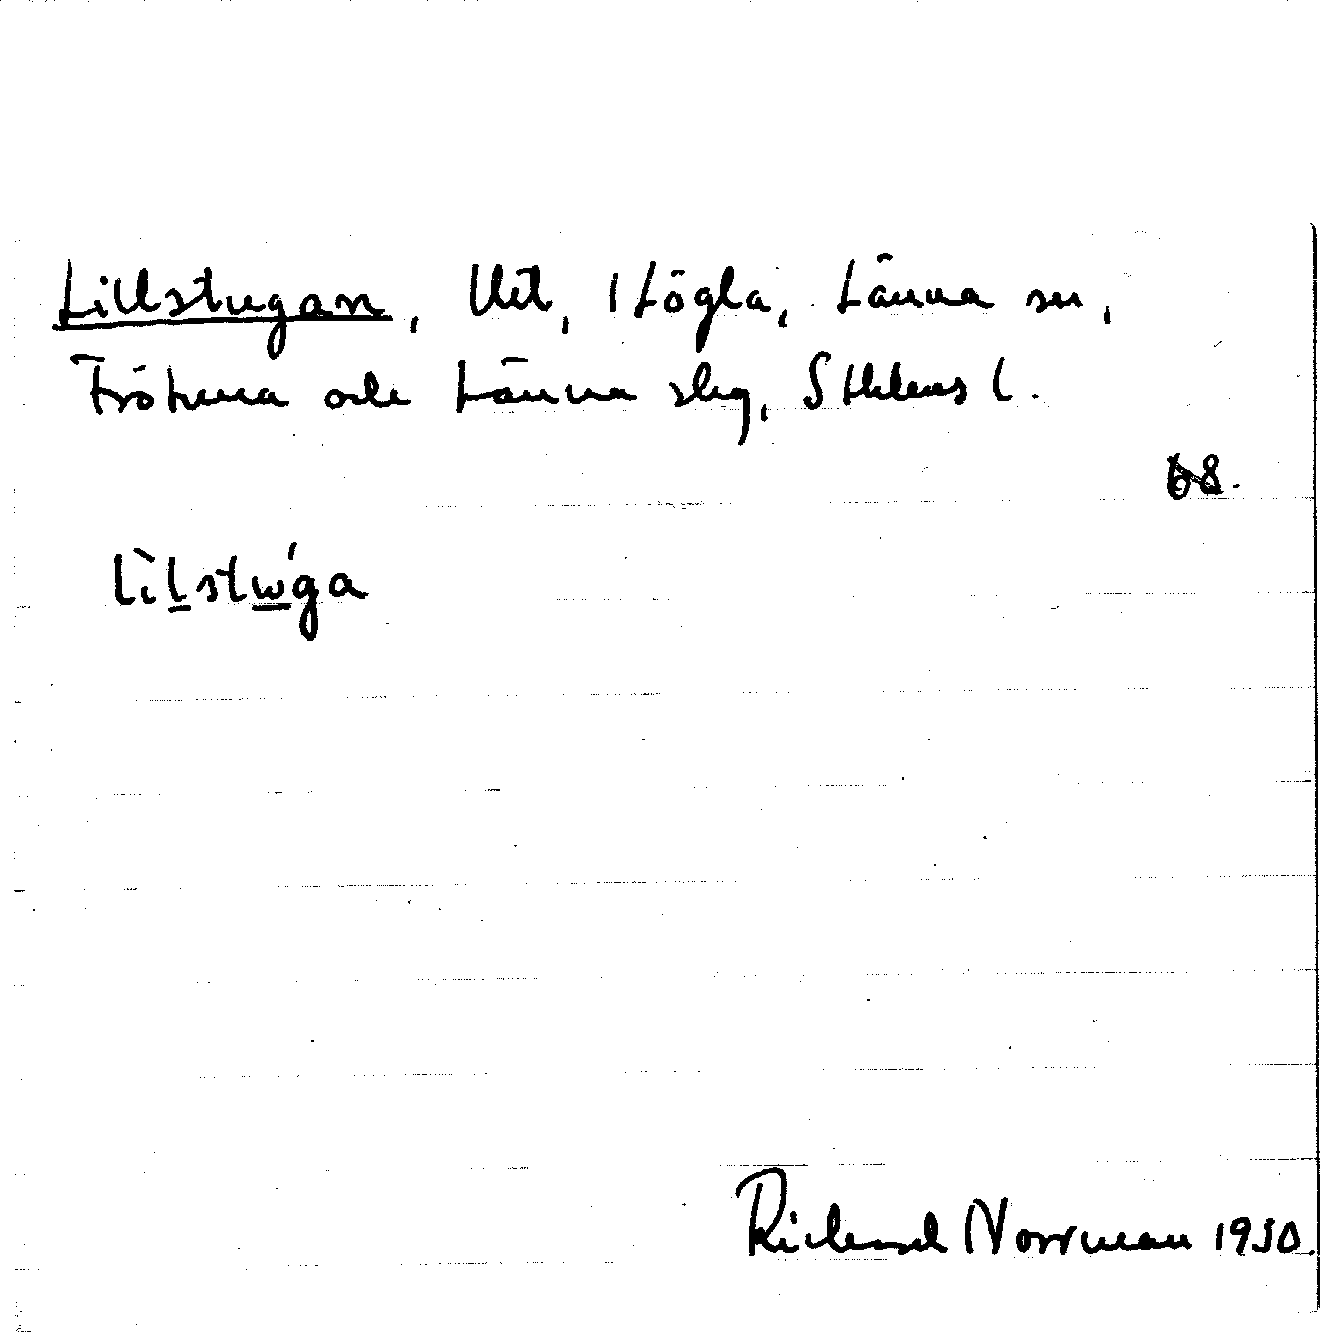 Lillstugan, Utt, 1 Högla, Länna sn,
Frötuna och Länna slg, Sthlms l.
68.
lìlstẃga
Richard Norrman 1930.